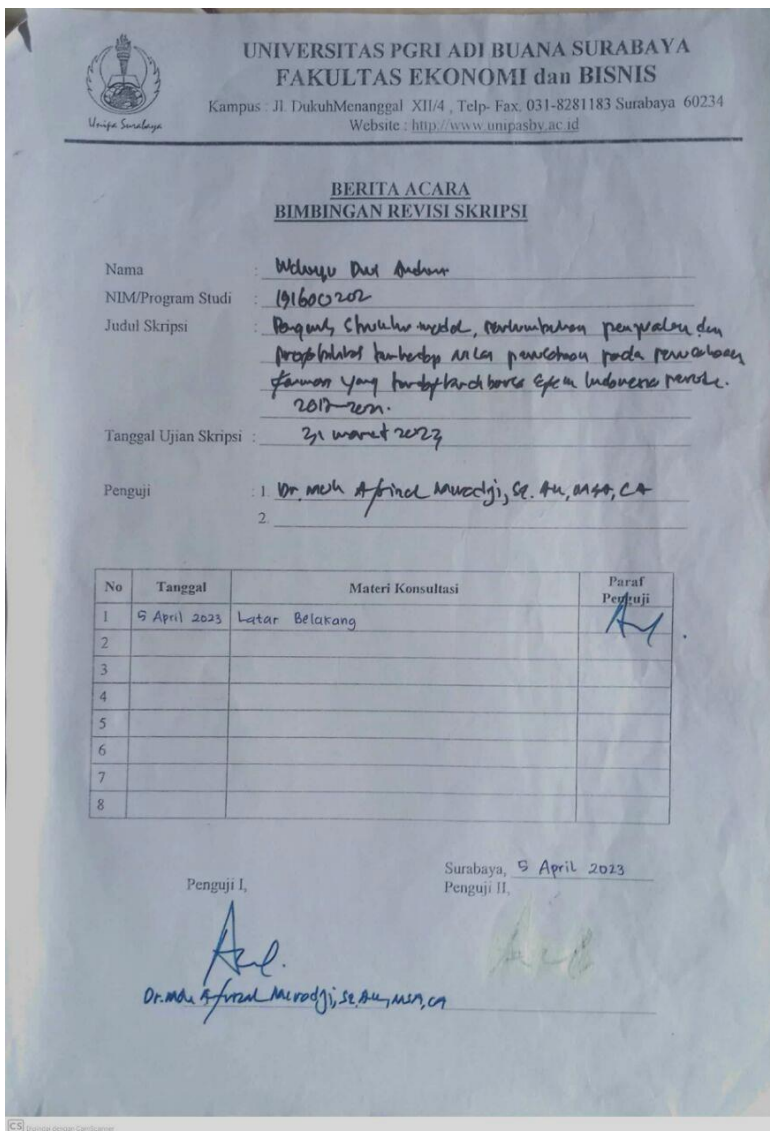 UNIVERSITAS PGRI ADI BUANA SURABAYA
FAKULTAS EKONOMI dan BISNIS
Kampus : Jl. DukuhMenanggal XII/4 , Telp- Fax. 031-8281183 Surabaya 60234
Website : http://www.unipasby.ac.id
Unipa Surabaya
BERITA ACARA
BIMBINGAN REVISI SKRIPSI
Nama : Wahyu Dwi
NIM/Program Studi : 191600202
Judul Skripsi : Struktur modal, pertumbuhan penjualan dan
terhadap nilai perusahaan pada perusahaan
farmasi yang bursa Efek Indonesia
Tanggal Ujian Skripsi : 31 maret 2023
Penguji : 1. Dr. Moh Afrizal Muradji, SE. Ak, MSA, CA
2.
No Tanggal Materi Konsultasi Paraf Penguji
1 5 April 2023 Latar Belakang
2
3
4
5
6
7
8
Surabaya, 5 April 2023
Penguji I, Penguji II,
Dr. Moh Afrizal Muradji, SE, Ak, MSA, CA
CS Dipindai dengan CamScanner